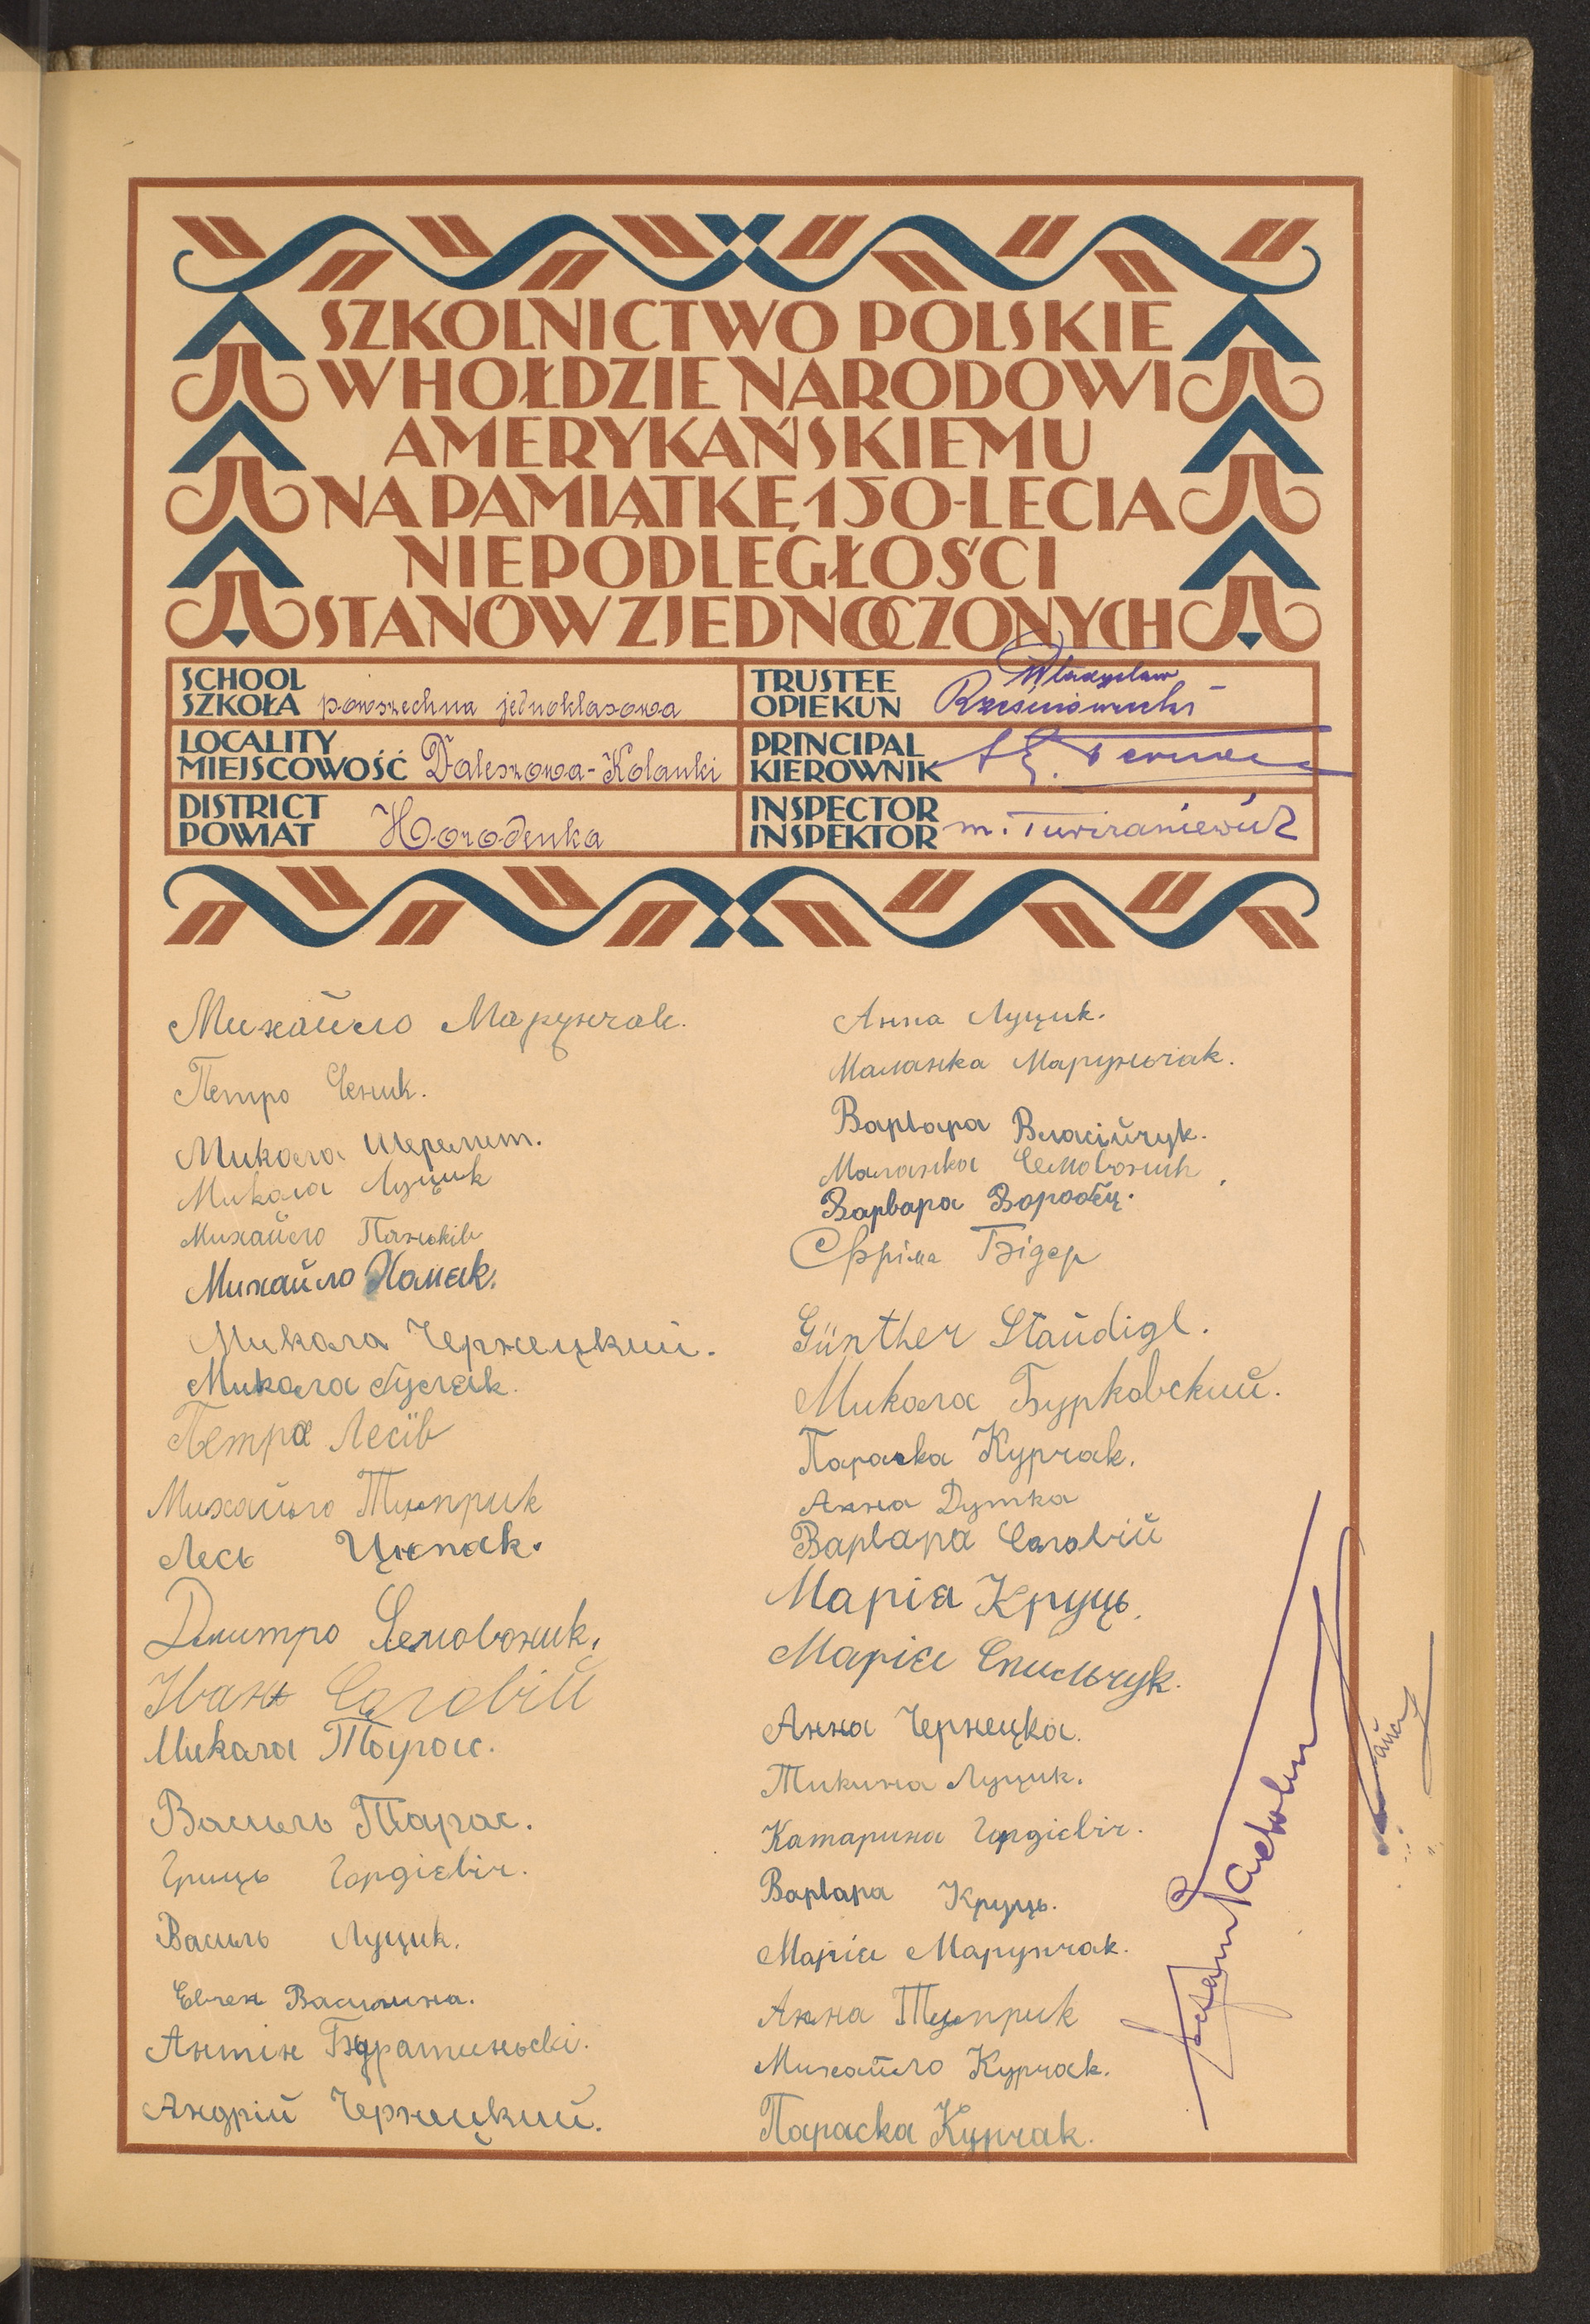 SZKOLNICTWO POLSKIE
W HOŁDZIE NARODOWI
AMERYKAŃSKIEMU
NA PAMIĄTKĘ 150-LECIA
NIEPODLEGŁOŚCI
STANÓW ZJEDNOCZONYCH
SCHOOL
SZKOŁA powszechna jednoklasowa
TRUSTEE
OPIEKUN Władysław
LOCALITY
MIEJSCOWOŚĆ Daleszowa-Kolanki
PRINCIPAL
KIEROWNIK
DISTRICT
POWIAT Horodenka
INSPECTOR
INSPEKTOR m.
Михайло Марунчак.
Петро Сеник.
Микола Шеремет.
Микола Луцик
Михайло Паньків
Михайло Хомєк.
Микола Чернецкий.
Микола
Петро Лесїв
Михайло Типрик
Лесь
Дмитро Семовоник.
Іван Соловій
Микола Тарас.
Василь Тарас.
Гриць Гордієвіч.
Василь Луцик.
Василина.
Антін
Андрій Чернецкий.
Анна Луцик.
Маланка Маруньчак.
Варвара Власійчук.
Маланка Семовоник.
Варвара Воробец.
Бідер
Günther Staudigl.
Микола Бурковский.
Параска Курчак.
Анна Дутка
Варвара Соловій
Маріа Круць.
Маріє Спильчук.
Анна Чернецка.
Тикина Луцик.
Катарина Гордієвіч.
Варвара Круць.
Маріє Марунчак.
Анна Типрик
Михайло Курчак.
Параска Курчак.